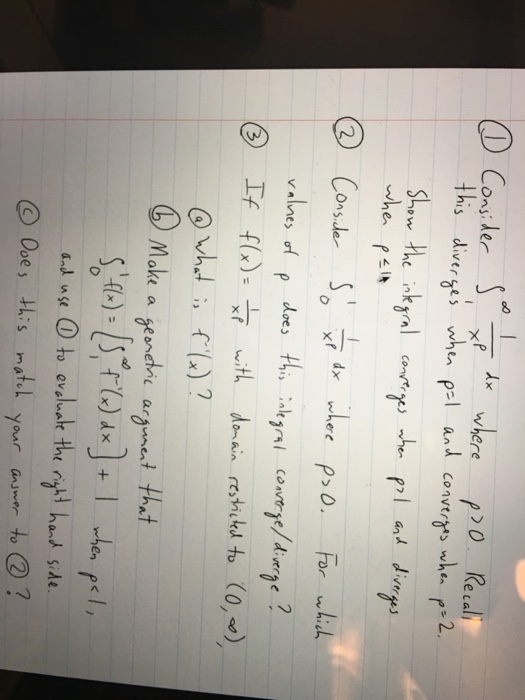 ① Consider ∫₁^∞ 1/x^p dx where p>0. Recall
this diverges when p=1 and converges when p=2.
Show the integral converges when p>1 and diverges
when p≤1
② Consider ∫₀¹ 1/x^p dx where p>0. For which
values of p does this integral converge/diverge?
③ If f(x) = 1/x^p with domain restricted to (0,∞),
ⓐ What is f⁻¹(x)?
ⓑ Make a geometric argument that
∫₀¹ f(x) = [∫₁^∞ f⁻¹(x) dx] + 1 when p<1,
and use ① to evaluate the right hand side.
ⓒ Does this match your answer to ②?